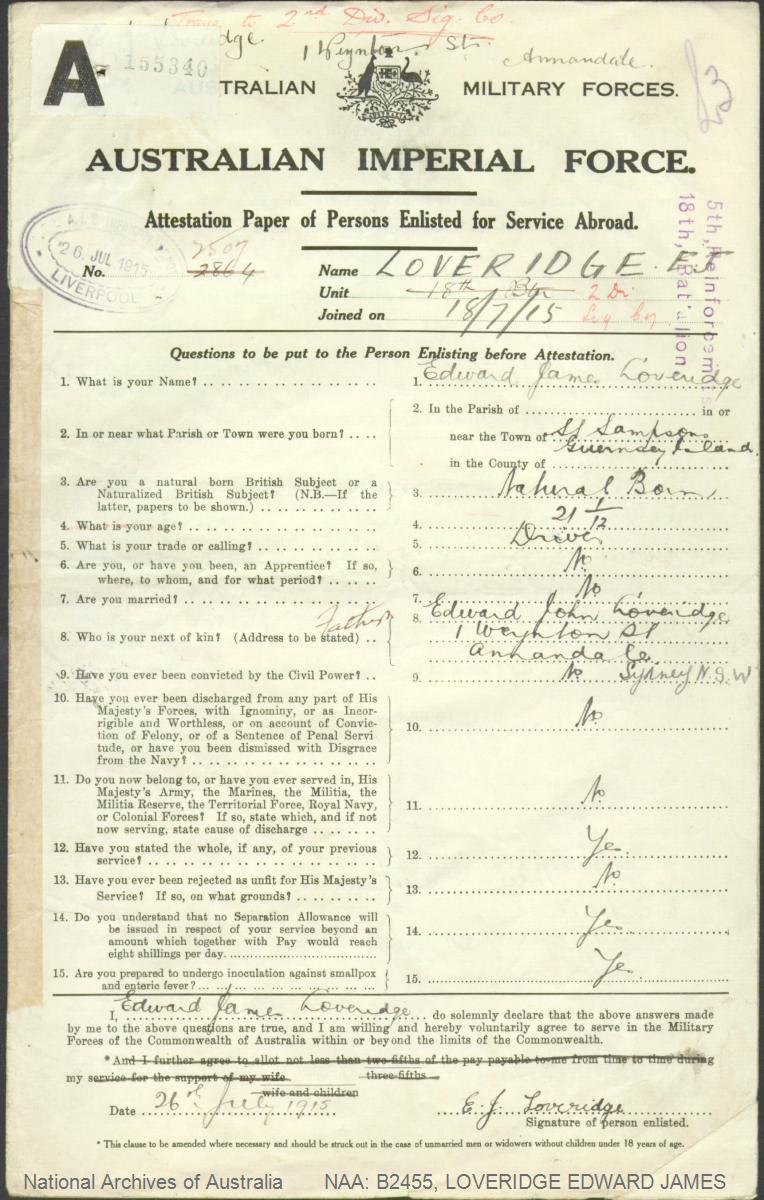 Trans to 2nd Div. Sig. Co.
1 Weynton St.
Annandale.
A
155340
TRALIAN MILITARY FORCES.
AUSTRALIAN IMPERIAL FORCE.
Attestation Paper of Persons Enlisted for Service Abroad.
5th, Reinforcements
18th, Bat'alion
26 JUL 1915
LIVERPOOL
2507
No. 2864
Name LOVERIDGE. EJ
Unit 18th Btn 2 Di
Sig Coy
Joined on 18/7/15
Questions to be put to the Person Enlisting before Attestation.
1. What is your Name? 1. Edward James Loveridge
2. In or near what Parish or Town were you born? 2. In the Parish of in or
near the Town of St Sampsons
Guernsey Island
in the County of
3. Are you a natural born British Subject or a
Naturalized British Subject? (N.B.—If the
latter, papers to be shown.) 3. Natural Born
4. What is your age? 4. 21 1/12
5. What is your trade or calling? 5. Driver
6. Are you, or have you been, an Apprentice? If so,
where, to whom, and for what period? 6. No
7. Are you married? 7. No
8. Who is your next of kin? (Address to be stated) Father 8. Edward John Loveridge
1 Weynton St
Annandale
Sydney N.S.W
9. Have you ever been convicted by the Civil Power? 9. No
10. Have you ever been discharged from any part of His
Majesty's Forces, with Ignominy, or as Incor-
rigible and Worthless, or on account of Convic-
tion of Felony, or of a Sentence of Penal Servi
tude, or have you been dismissed with Disgrace
from the Navy? 10. No
11. Do you now belong to, or have you ever served in, His
Majesty's Army, the Marines, the Militia, the
Militia Reserve, the Territorial Force, Royal Navy,
or Colonial Forces? If so, state which, and if not
now serving, state cause of discharge 11. No
12. Have you stated the whole, if any, of your previous
service? 12. Yes
13. Have you ever been rejected as unfit for His Majesty's
Service? If so, on what grounds? 13. No
14. Do you understand that no Separation Allowance will
be issued in respect of your service beyond an
amount which together with Pay would reach
eight shillings per day. 14. Yes
15. Are you prepared to undergo inoculation against smallpox
and enteric fever? 15. Yes
I, Edward James Loveridge do solemnly declare that the above answers made
by me to the above questions are true, and I am willing and hereby voluntarily agree to serve in the Military
Forces of the Commonwealth of Australia within or beyond the limits of the Commonwealth.
*And I further agree to allot not less than two-fifths of the pay payable to me from time to time during
my service for the support of my wife three-fifths
wife and children
Date 26th July 1915 E. J. Loveridge
Signature of person enlisted.
* This clause to be amended where necessary and should be struck out in the case of unmarried men or widowers without children under 18 years of age.
National Archives of Australia NAA: B2455, LOVERIDGE EDWARD JAMES